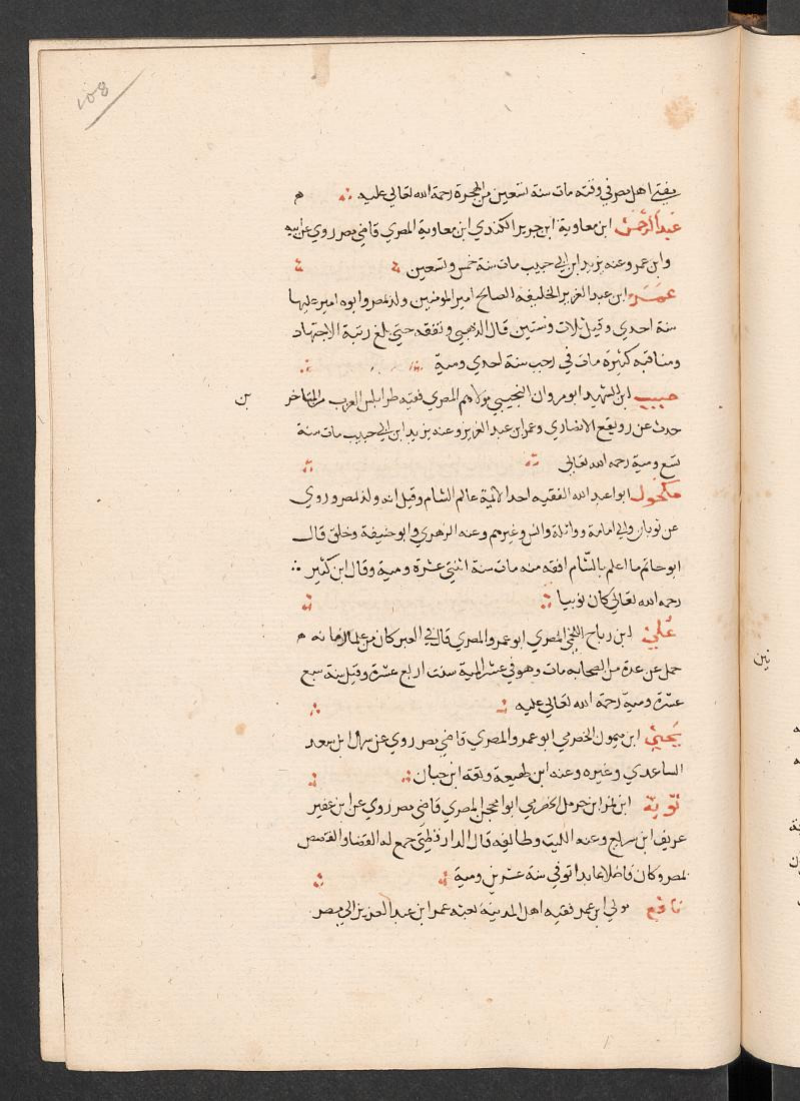 108
مفتي اهل مصر في وقته مات سنة تسعين من الهجرة رحمة الله تعالى عليه
عبد الرحمن ابن معاوية ابن جرير الكندي ابن معاوية المصري قاضي مصر روي عن ابيه
وابن عمر وعنه يزيد ابن ابي حبيب مات سنة خمس وتسعين
عمر ابن عبد العزيز الخليفه الصالح امير المومنين ولد بمصر وابوه امير عليها
سنة احدي وقيل ثلاث وستين قال الذهبي وتفقه حتى بلغ رتبة الاجتهاد
ومناقبه كثيرة مات في رجب سنة احدي ومية
حبيب ابن الشهيد ابو مروان التجيبي مولاهم المصري فقيه طرابلس الغرب
حدث عن رويفع الانصاري وعمر ابن عبد العزيز وعنه يزيد ابن ابي حبيب مات سنة
تسع ومية رحمه الله تعالى
مكحول ابو عبد الله الفقيه احد الائمة عالم الشام وقيل انه ولد بمصر وروي
عن ثوبان وابي امامة وواثلة وانس وغيرهم وعنه الزهري وابو حنيفة وخلق قال
ابو حاتم ما اعلم بالشام افقه منه مات سنة اثنتي عشرة ومية وقال ابن كثير
رحمه الله تعالى كان نوبيا
علي ابن رباح اللخمي المصري ابو عمر والمصري قال في العبر كان من علما زمانه
حمل عن عدة من الصحابه مات وهو في عشر المية سنت اربع عشرة وقيل سنة سبع
عشرة ومية رحمة الله تعالى عليه
يحيي ابن ميمون الحضرمي ابو عمر والمصري قاضي مصر روي عن سهل ابن سعد
الساعدي وغيره وعنه ابن لهيعة وثقه ابن حبان
توبة ابن نمر ابن حرمل الحضرمي ابو محجن المصري قاضي مصر روي عن ابن عفير
عريف ابن سراج وعنه الليث وطائفه قال الدارقطني جمع له القضا والقصص
بمصر وكان فاضلا عابدا توفي سنة عشرين ومية
نافع مولي ابن عمر فقيه اهل المدينه بعثه عمر ابن عبد العزيز الي مصر